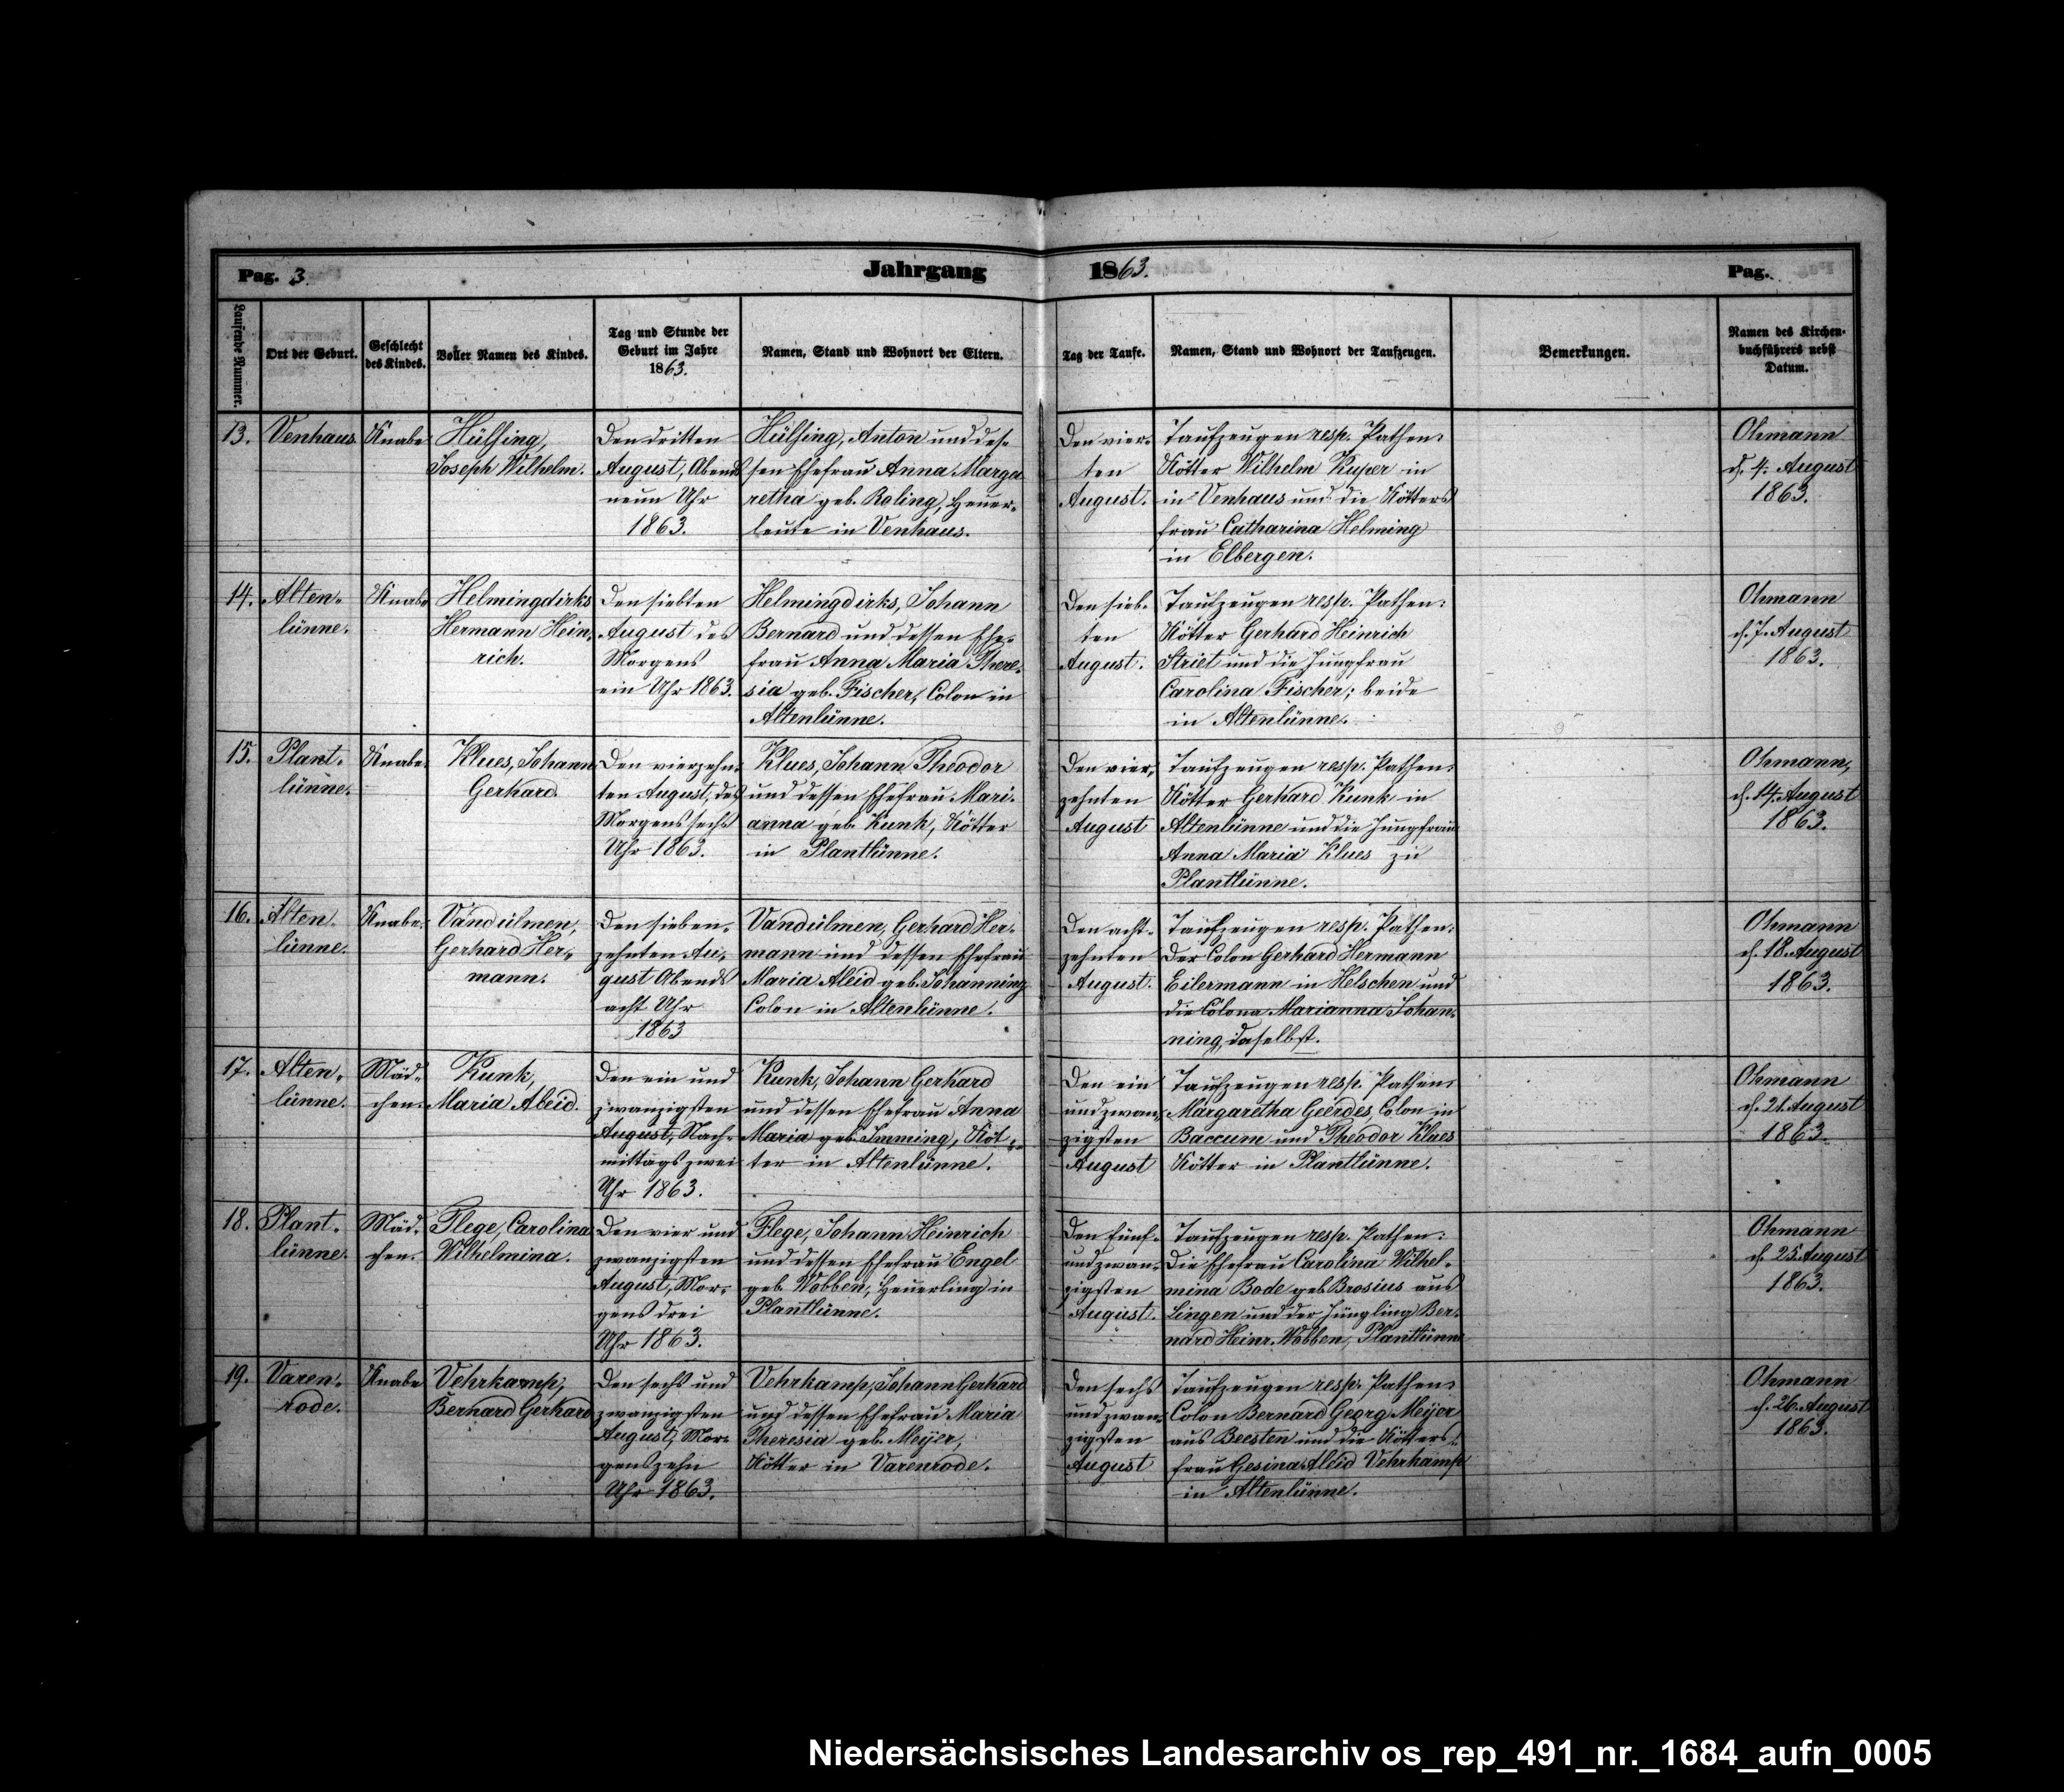 Pag. 3.
Jahrgang 1863.
Pag.
Laufende Nummer.
Ort der Geburt.
Geschlecht
des Kindes.
Voller Namen des Kindes.
Tag und Stunde der
Geburt im Jahre
1863.
Namen, Stand und Wohnort der Eltern.
Tag der Taufe.
Namen, Stand und Wohnort der Taufzeugen.
Bemerkungen.
Namen des Kirchen-
buchführers nebst
Datum.
13.
Venhaus
Knabe
Hülsing,
Joseph Wilhelm.
Den dritten
August, Abends
neun Uhr
1863.
Hülsing, Anton und des-
sen Ehefrau Anna Marga
retha geb. Roling, Heuer-
leute in Venhaus.
Den vier-
ten
August.
Taufzeugen resp. Pathen:
Kötter Wilhelm Kuper in
in Venhaus und die Kötters
frau Catharina Helming
in Elbergen.
Ohmann
d. 4. August
1863.
14.
Alten-
lünne.
Knabe
Helmingdirks
Hermann Hein-
rich.
Den siebten
August des
Morgens
ein Uhr 1863.
Helmingdirks, Johann
Bernard und dessen Ehe-
frau Anna Maria There-
sia geb. Fischer, Colon in
Altenlünne.
Den sieb-
ten
August.
Taufzeugen resp. Pathen:
Kötter Gerhard Heinrich
Striet und die Jungfrau
Carolina Fischer; beide
in Altenlünne.
Ohmann
d. 7. August
1863.
15.
Plant-
lünne.
Knabe.
Klues, Johann
Gerhard.
Den vierzehn-
ten August, des
Morgens sechs
Uhr 1863.
Klues, Johann Theodor
und dessen Ehefrau Mari-
anna geb. Kunk, Kötter
in Plantlünne.
Den vier-
zehnten
August
Taufzeugen resp. Pathen:
Kötter Gerhard Kunk in
Altenlünne und die Jungfrau
Anna Maria Klues zu
Plantlünne.
Ohmann,
d. 14. August
1863.
16.
Alten-
lünne.
Knabe.
Vandülmen,
Gerhard Her-
mann.
Den sieben-
zehnten Au-
gust Abends
acht Uhr
1863
Vandülmen, Gerhard Her-
mann und dessen Ehefrau
Maria Aleid geb. Johanning
Colon in Altenlünne.
Den acht-
zehnten
August.
Taufzeugen resp. Pathen:
Der Colon Gerhard Hermann
Eilermann in Helschen und
die Colona Marianna Johan-
ning, daselbst.
Ohmann
d. 18. August
1863.
17.
Alten-
lünne.
Mäd-
chen.
Kunk,
Maria Aleid.
Den ein und
zwanzigsten
August, Nach-
mittags zwei
Uhr 1863.
Kunk, Johann Gerhard
und dessen Ehefrau Anna
Maria geb. Imming, Köt-
ter in Altenlünne.
Den ein
und zwan-
zigsten
August
Taufzeugen resp. Pathen:
Margaretha Geerdes, Colon in
Baccum und Theodor Klues
Kötter in Plantlünne.
Ohmann
d. 21. August
1863.
18.
Plant-
lünne.
Mäd-
chen.
Flege, Carolina
Wilhelmina.
Den vier und
zwanzigsten
August, Mor-
gens drei
Uhr 1863.
Flege, Johann Heinrich
und dessen Ehefrau Engel
geb. Wobben, Heuerling in
Plantlünne.
Den fünf-
und zwan-
zigsten
August.
Taufzeugen resp. Pathen:
Die Ehefrau Carolina Wilhel-
mina Bode geb. Brosius aus
Lingen und der Jüngling Ber-
nard Heinr. Wobben, Plantlünne
Ohmann
d. 25. August
1863.
19.
Varen-
rode.
Knabe
Vehrkamp,
Bernard Gerhard
Den sechs und
zwanzigsten
August, Mor-
gens zehn
Uhr 1863.
Vehrkamp, Johann Gerhard
und dessen Ehefrau Maria
Theresia geb. Meyer,
Kötter in Varenrode.
Den sechs
und zwan-
zigsten
August
Taufzeugen resp. Pathen:
Colon Bernard Georg Meyer
aus Beesten und die Kötters-
frau Gesina Aleid Vehrkamp
in Altenlünne.
Ohmann
d. 26. August
1863.
Niedersächsisches Landesarchiv os_rep_491_nr._1684_aufn_0005